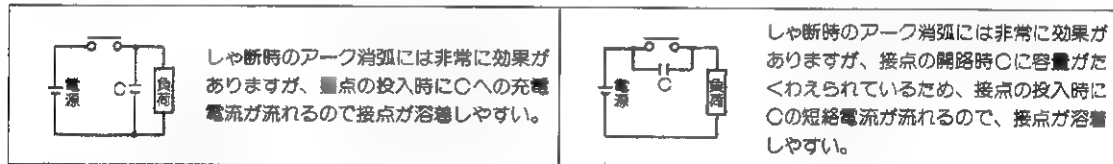 電源
C
負荷
しゃ断時のアーク消弧には非常に効果が
ありますが、点の投入時にCへの充電
電流が流れるので接点が溶着しやすい。
電源
C
負荷
しゃ断時のアーク消弧には非常に効果が
ありますが、接点の開路時Cに容量がた
くわえられているため、接点の投入時に
Cの短絡電流が流れるので、接点が溶着
しやすい。